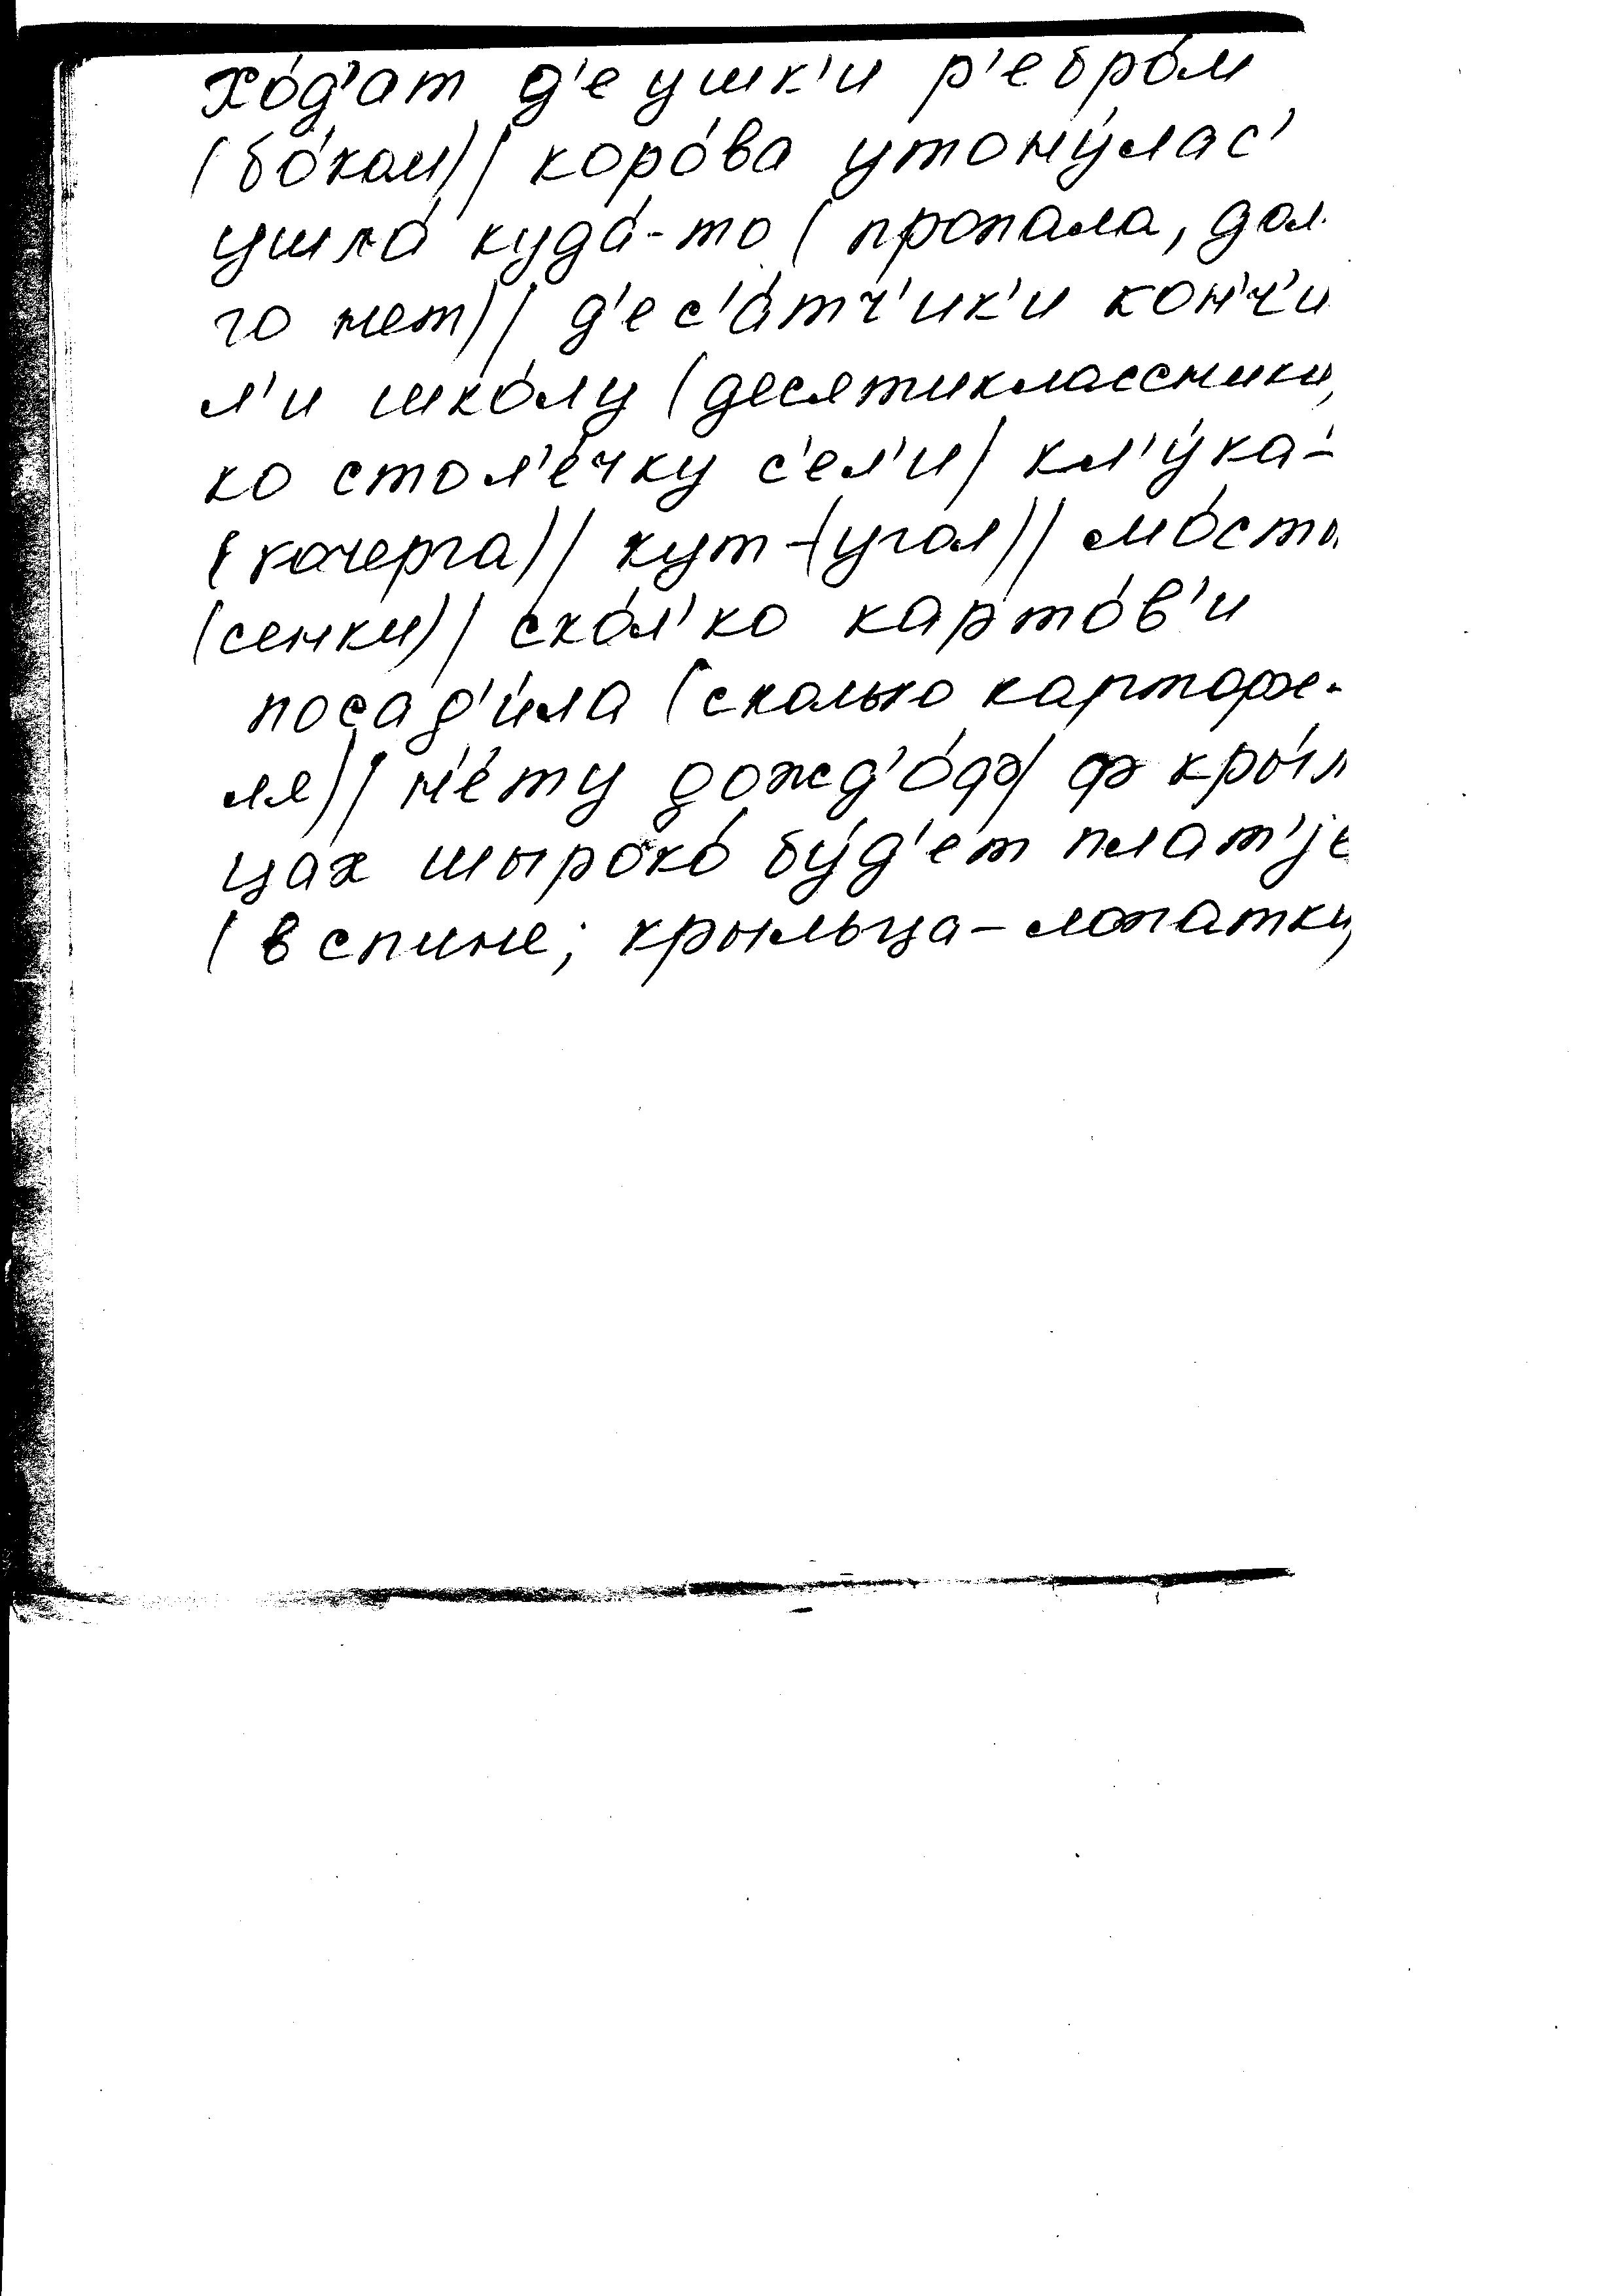 хо́д'ат д'еушк'и р'ебро́м
(бо́ком)/ коро́ва утону́лас'
ушла́ куда́-то (пропала, дол-
го нет)/ д'ес'а́тч'ик'и кон'ч'и
л'и шко́лу (десятиклассники)
ко стол'е́чку с'ел'и/ кл'у́ка-
(кочерга)/ кут-(угол)/ мо́сты
(сенки)/ ско́л'ко карто́в'и
посад'и́ла (сколько картофе-
ля)/ н'е́ту дожд'о́ф/ ф кры́л
цах шыроко́ бу́д'ет плат'jе
(в спине; крыльца-лопатки)